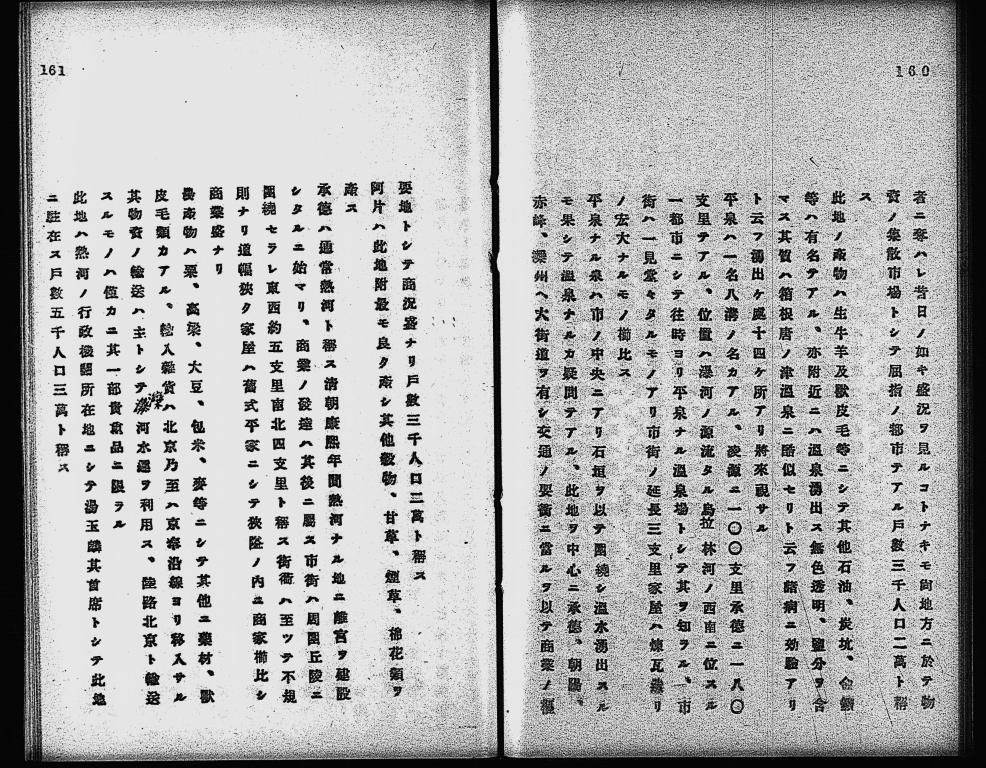 160
者ニ奪ハレ昔日ノ如キ盛況ヲ見ルコトナキモ尚地方ニ於テ物
資ノ集散市場トシテ屈指ノ都市テアル戸數三千人口二萬ト稱
ス
此地ノ產物ハ生牛羊及獸皮毛等ニシテ其他石油、炭坑、金鑛
等ハ有名テアル、亦附近ニハ溫泉湧出ス無色透明、鹽分ヲ含
マス其質ハ箱根唐ノ津溫泉ニ酷似セリト云フ諸病ニ効驗アリ
ト云フ湧出ケ處十四ケ所アリ將來視サル
平泉ハ一名八溝ノ名カアル、凌源ニ一〇〇支里承德ニ一八〇
支里テアル、位置ハ瀑河ノ源流タル烏拉林河ノ西南ニ位スル
一都市ニシテ往時ヨリ平泉ナル溫泉場トシテ其ヲ知ラル、市
街ハ一見堂々タルモノアリ市街ノ延長三支里家屋ハ煉瓦造リ
ノ宏大ナルモノ櫛比ス
平泉ナル泉ハ市ノ中央ニアリ石垣ヲ以テ圍繞シ溫水湧出スル
モ果シテ溫泉ナルカ疑問テアル、此地ヲ中心ニ承德、朝陽、
赤峰、灤州ヘ大街道ヲ有シ交通ノ要衝ニ當ルヲ以テ商業ノ樞
161
要地トシテ商況盛ナリ戸數三千人口二萬ト稱ス
阿片ハ此地附最モ良ク產シ其他穀物、甘草、煙草、棉花類ヲ
產ス
承德ハ通常熱河ト稱ス淸朝康熙年間熱河ナル地ニ離宮ヲ建設
シタルニ始マリ、商業ノ發達ハ其後ニ屬ス市街ハ周圍丘陵ニ
圍繞セラレ東西約五支里南北四支里ト稱ス街衢ハ至ツテ不規
則ナリ道幅狹ク家屋ハ舊式平家ニシテ狹隘ノ內ニ商家櫛比シ
商業盛ナリ
農產物ハ粟、高粱、大豆、包米、麥等ニシテ其他ニ藥材、獸
皮毛類カアル、輸入雜貨ハ北京乃至ハ京奉沿線ヨリ移入サル
其物資ノ輸送ハ主トシテ灤河水運ヲ利用ス、陸路北京ト輸送
スルモノハ僅カニ其一部貴重品ニ限ラル
此地ハ熱河ノ行政機關所在地ニシテ湯玉麟其首席トシテ此地
ニ駐在ス戸數五千人口三萬ト稱ス